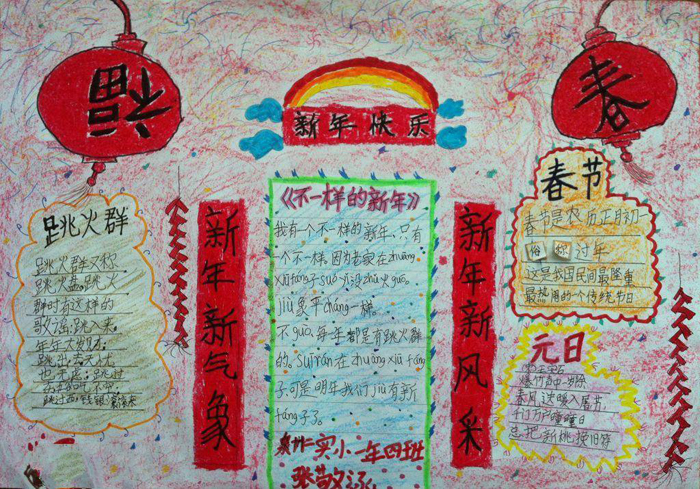 福
春
新年快乐
跳火群
跳火群又称
跳火盆。跳火
群时有这样的
歌谣:跳入来,
年年大发财;
跳出去,无忧
也无虑;跳过
新年新气象
《不一样的新年》
我有一个不一样的新年,只有
一个不一样,因为老家在zhuāng
xiū fáng子suǒ yǐ没zhù火guō。
jiù象平cháng一样。
不guò,每年都是有跳火群
的。Suī rán在zhuāng xiū fáng
子,可是明年我们jiù有新
fáng子了。
实小一年四班
新年新风采
春节
春节是农历正月初一
俗称过年
这是我国民间最隆重
最热闹的一个传统节日
元日
爆竹声中一岁除
春风送暖入屠苏
千门万户曈曈日
总把新桃换旧符